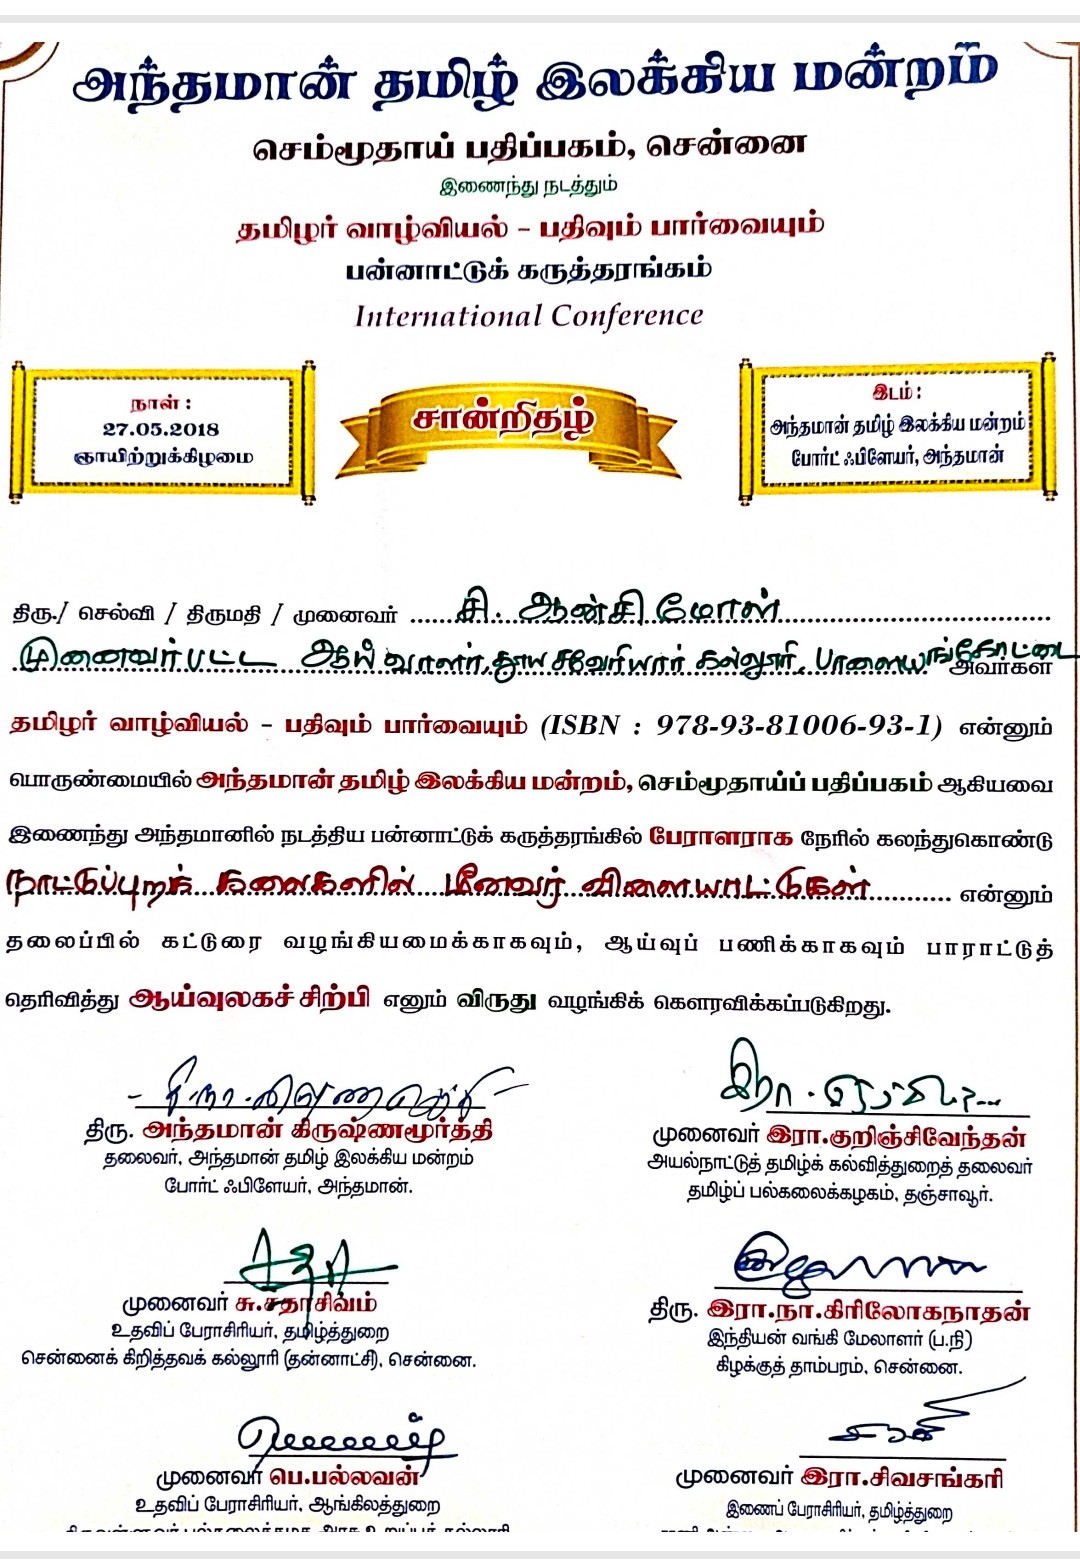 அந்தமான் தமிழ் இலக்கிய மன்றம்
செம்மூதாய் பதிப்பகம், சென்னை
இணைந்து நடத்தும்
தமிழர் வாழ்வியல் - பதிவும் பார்வையும்
பன்னாட்டுக் கருத்தரங்கம்
International Conference
நாள் :
27.05.2018
ஞாயிற்றுக்கிழமை
சான்றிதழ்
இடம் :
அந்தமான் தமிழ் இலக்கிய மன்றம்
போர்ட் ஃபிளேயர், அந்தமான்
திரு./ செல்வி / திருமதி / முனைவர் சி. ஆன்சி மோள்
முனைவர்பட்ட ஆய்வாளர், தூய சவேரியார் கல்லூரி, பாளையங்கோட்டை அவர்கள்
தமிழர் வாழ்வியல் - பதிவும் பார்வையும் (ISBN : 978-93-81006-93-1) என்னும்
பொருண்மையில் அந்தமான் தமிழ் இலக்கிய மன்றம், செம்மூதாய்ப் பதிப்பகம் ஆகியவை
இணைந்து அந்தமானில் நடத்திய பன்னாட்டுக் கருத்தரங்கில் பேராளராக நேரில் கலந்துகொண்டு
நாட்டுப்புறக் கலைகளில் மீனவர் விளையாட்டுகள் என்னும்
தலைப்பில் கட்டுரை வழங்கியமைக்காகவும், ஆய்வுப் பணிக்காகவும் பாராட்டுத்
தெரிவித்து ஆய்வுலகச் சிற்பி எனும் விருது வழங்கிக் கௌரவிக்கப்படுகிறது.
திரு. அந்தமான் கிருஷ்ணமூர்த்தி
தலைவர், அந்தமான் தமிழ் இலக்கிய மன்றம்
போர்ட் ஃபிளேயர், அந்தமான்.
முனைவர் இரா.குறிஞ்சிவேந்தன்
அயல்நாட்டுத் தமிழ்க் கல்வித்துறைத் தலைவர்
தமிழ்ப் பல்கலைக்கழகம், தஞ்சாவூர்.
முனைவர் சு.சதாசிவம்
உதவிப் பேராசிரியர், தமிழ்த்துறை
சென்னைக் கிறித்தவக் கல்லூரி (தன்னாட்சி), சென்னை.
திரு. இரா.நா.கிரிலோகநாதன்
இந்தியன் வங்கி மேலாளர் (ப.நி)
கிழக்குத் தாம்பரம், சென்னை.
முனைவர் பெ.பல்லவன்
உதவிப் பேராசிரியர், ஆங்கிலத்துறை
முனைவர் இரா.சிவசங்கரி
இணைப் பேராசிரியர், தமிழ்த்துறை